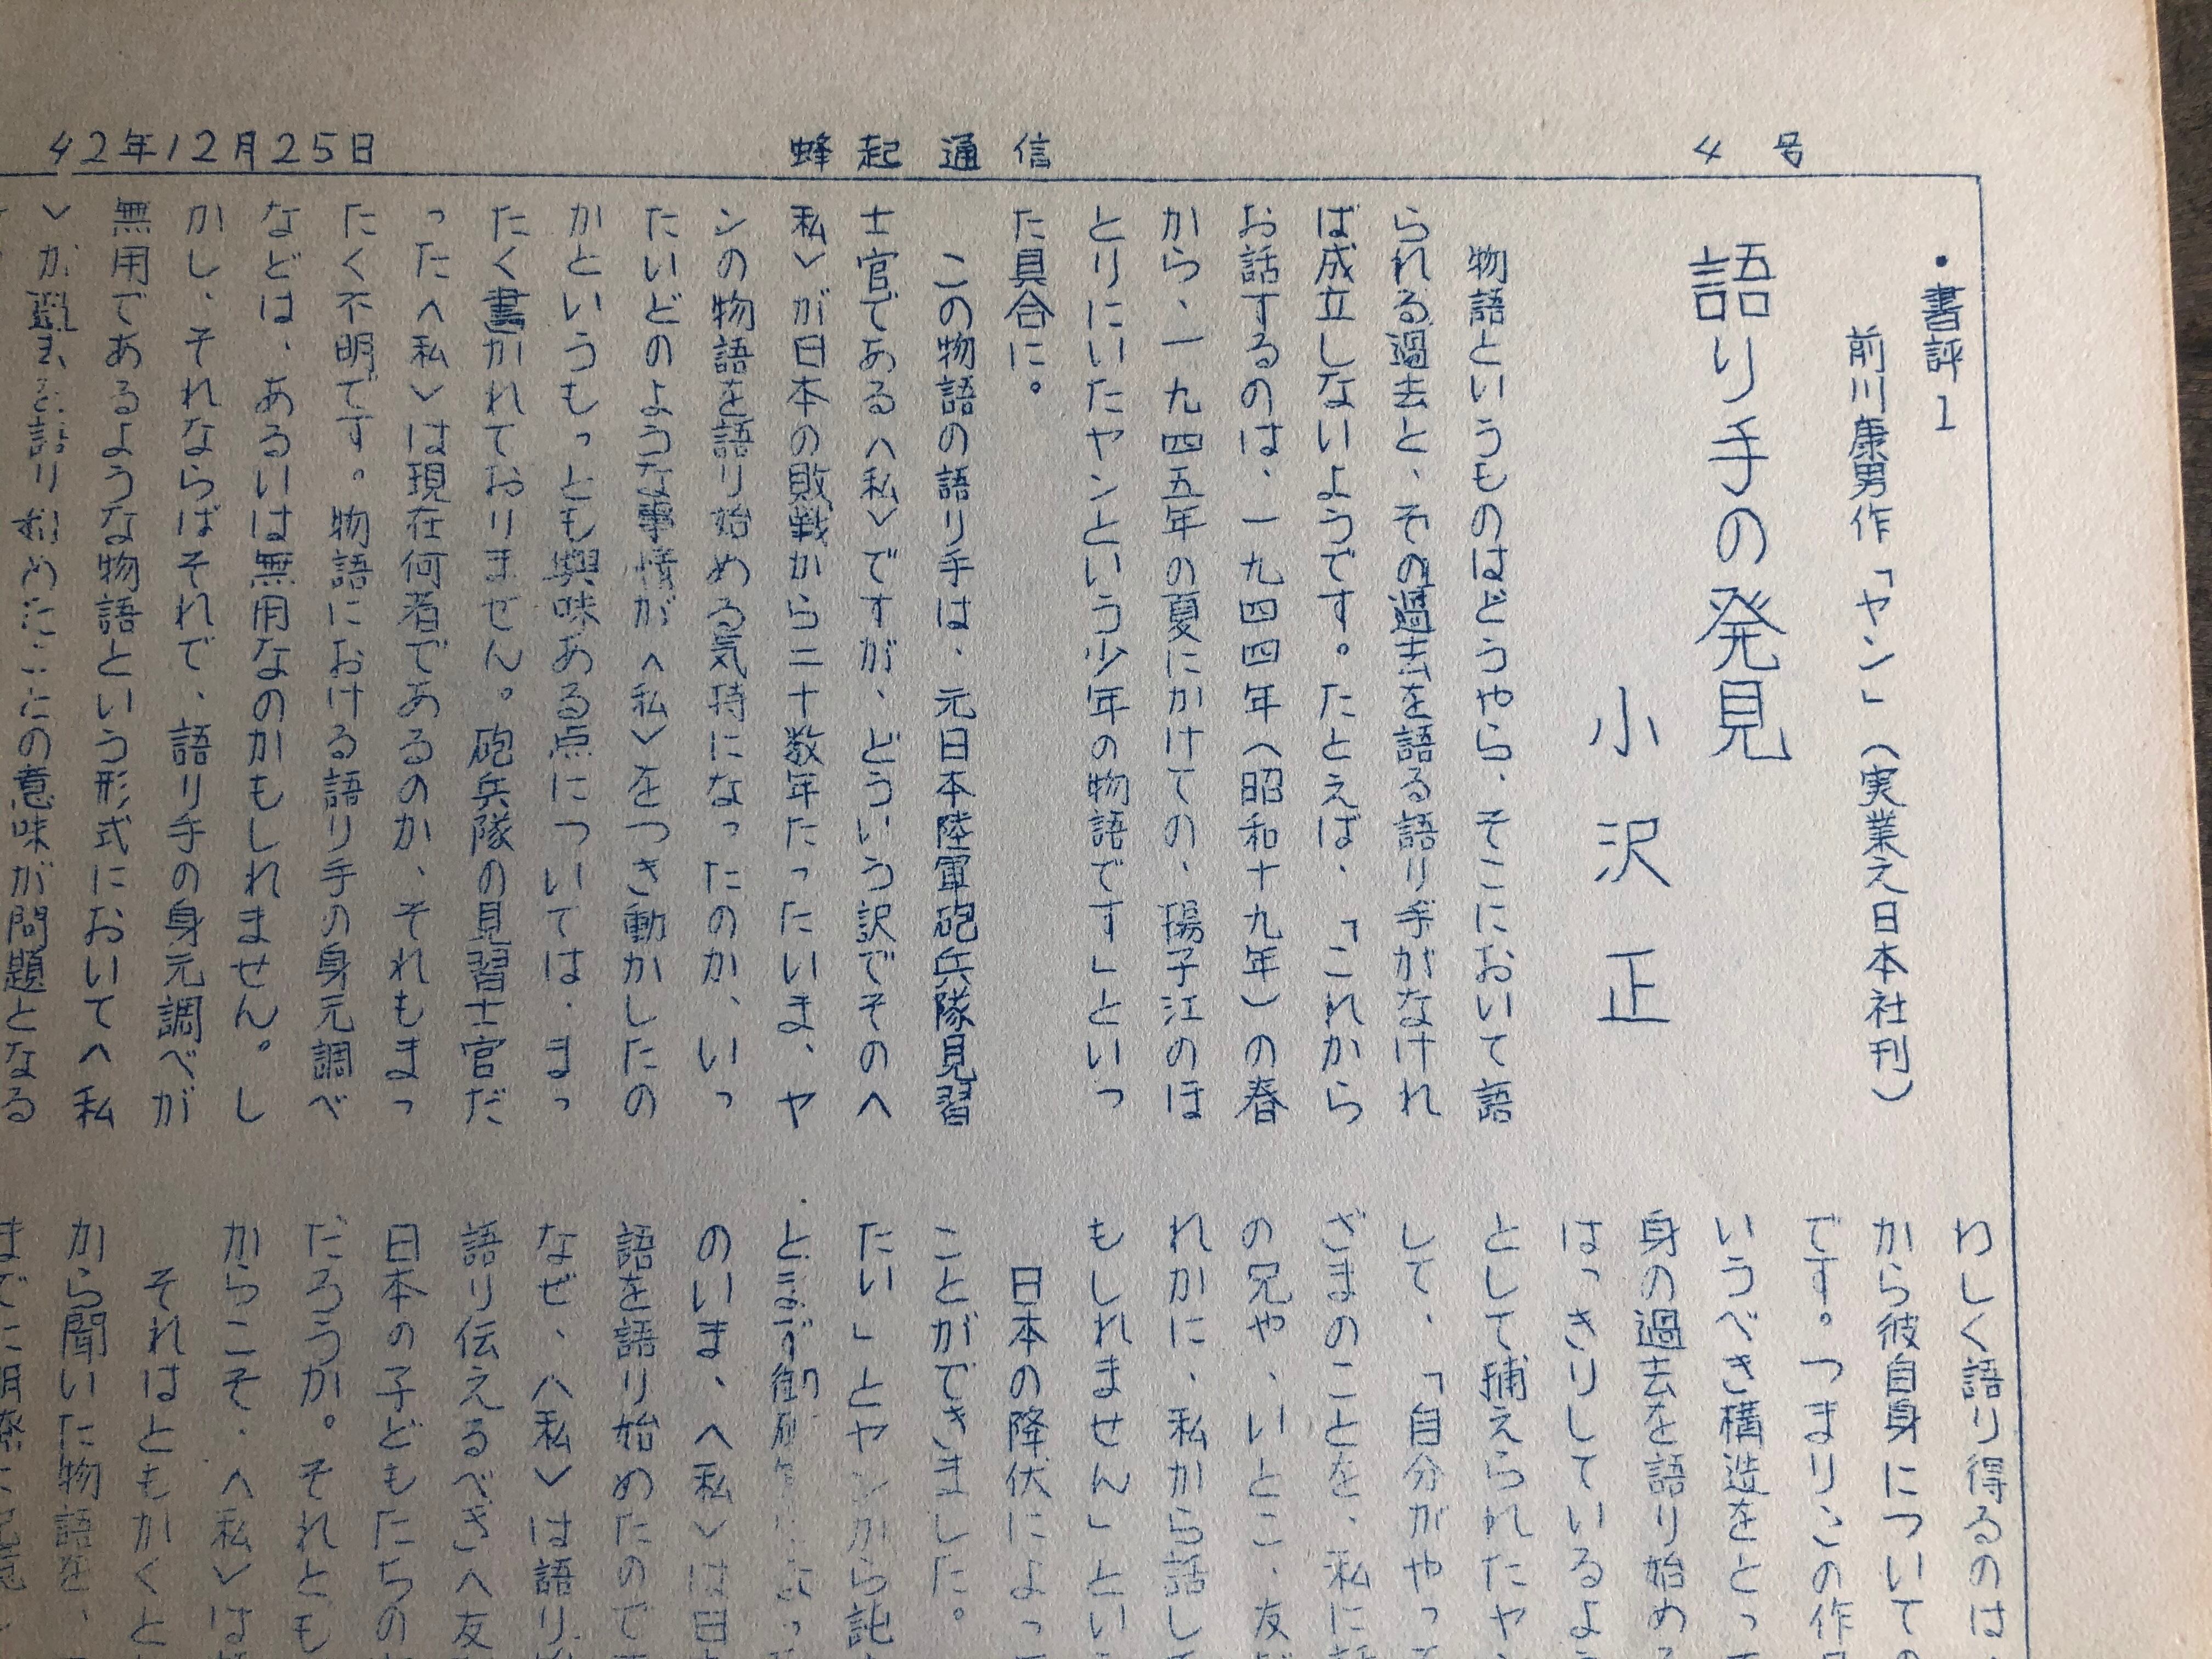 4号
蜂起通信
42年12月25日
・書評1
前川康男作「ヤン」(実業之日本社刊)
語り手の発見
小沢正
物語というものはどうやら、そこにおいて語
られる過去と、その過去を語る語り手がなけれ
ば成立しないようです。たとえば、「これから
お話するのは、一九四四年(昭和十九年)の春
から、一九四五年の夏にかけての、揚子江のほ
とりにいたヤンという少年の物語です」といっ
た具合に。
この物語の語り手は、元日本陸軍砲兵隊見習
士官である〈私〉ですが、どういう訳でその〈
私〉が日本の敗戦から二十数年たったいま、ヤ
ンの物語を語り始める気持になったのか、いっ
たいどのような事情が〈私〉をつき動かしたの
かというもっとも興味ある点については、まっ
たく書かれておりません。砲兵隊の見習士官だ
った〈私〉は現在何者であるのか、それもまっ
たく不明です。物語における語り手の身元調べ
などは、あるいは無用なのかもしれません。し
かし、それならばそれで、語り手の身元調べが
無用であるような物語という形式において〈私
〉が過去を語り始めたことの意味が問題となる
わしく語り得るのは、
から彼自身についての
です。つまりこの作
いうべき構造をとっ
身の過去を語り始め
はっきりしているよ
として捕えられたヤ
して、「自分がやっ
ざまのことを、私に
の兄や、いとこ、友
れかに、私から話し
もしれません」とい
日本の降伏によっ
ことができました。
たい」とヤンから託
とまず
のいま、〈私〉は日
語を語り始めたので
なぜ、〈私〉は語り
語り伝えるべき〈友
日本の子どもたちの
だろうか。それとも
からこそ、〈私〉は
それはともかくと
から聞いた物語を、
までに明瞭に記憶